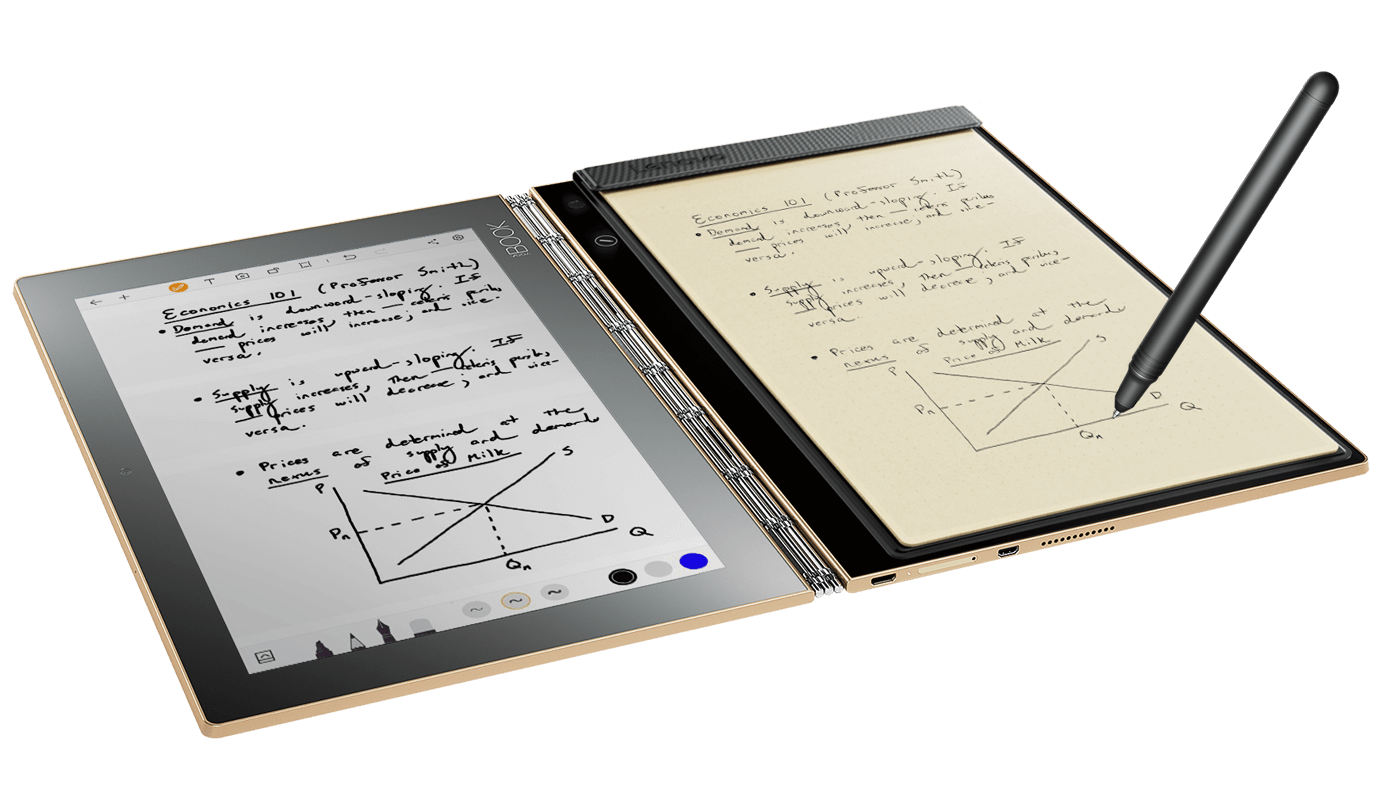 BOOK
T
Economics 101 (Professor Smith)
• Demand is downward-sloping. If
demand increases, then ceteris paribus
prices will increase; and vice-
versa.
• Supply is upward-sloping. If
supply increases, then ceteris paribus
prices will decrease; and vice-
versa.
• Prices are determined at the
nexus of supply and demand
Price of Milk
P
S
Pn
D
Q
Qn
Lenovo
Economics 101 (Professor Smith)
• Demand is downward-sloping. If
demand increases, then ceteris paribus
prices will increase; and vice-
versa.
• Supply is upward-sloping. If
supply increases, then ceteris paribus
prices will decrease; and vice-
versa.
• Prices are determined at the
nexus of supply and demand
Price of Milk
P
S
Pn
D
Q
Qn